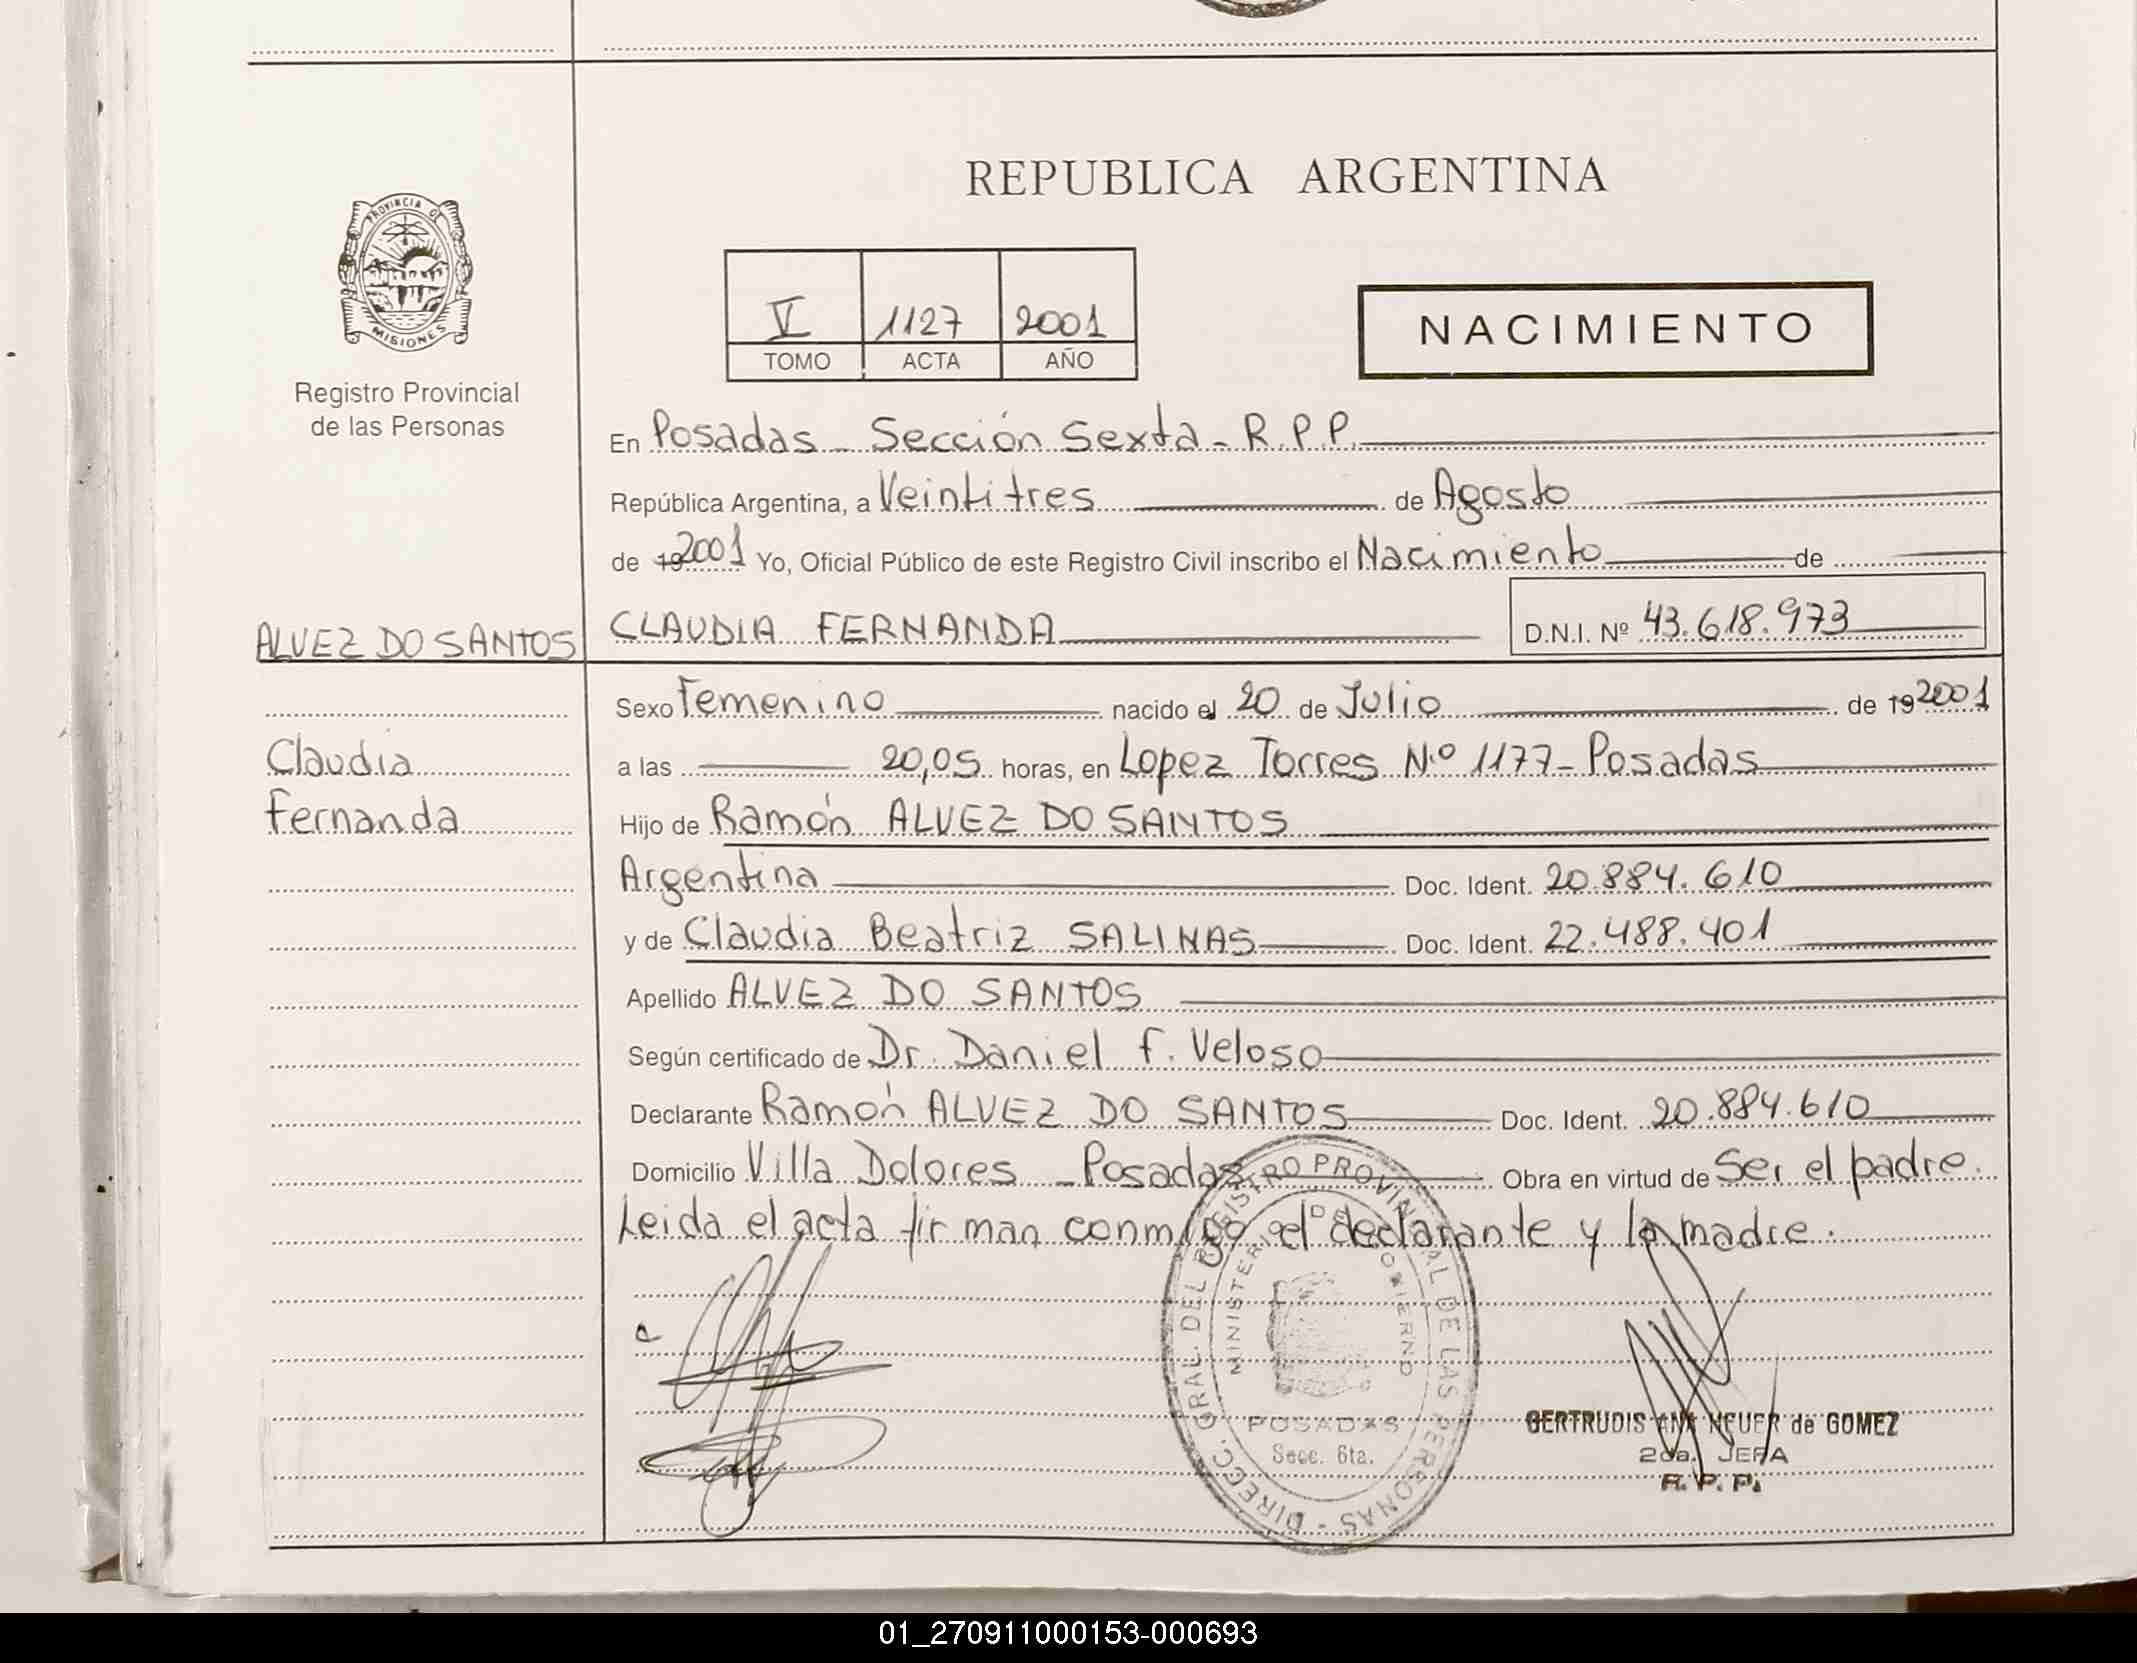 REPUBLICA ARGENTINA
PROVINCIA DE
MISIONES
Registro Provincial
de las Personas
V 1127 2001
TOMO ACTA AÑO
NACIMIENTO
En Posadas - Sección Sexta - R.P.P.
República Argentina, a Veintitres de Agosto
de 19 2001 Yo, Oficial Público de este Registro Civil inscribo el Nacimiento de
ALVEZ DO SANTOS CLAUDIA FERNANDA D.N.I. Nº 43.618.973
Sexo Femenino nacido el 20 de Julio de 19 2001
Claudia a las 20,05 horas, en Lopez Torres N.º 1177 - Posadas
Fernanda Hijo de Ramón ALVEZ DO SANTOS
Argentina Doc. Ident. 20.884.610
y de Claudia Beatriz SALINAS Doc. Ident. 22.488.401
Apellido ALVEZ DO SANTOS
Según certificado de Dr. Daniel F. Veloso
Declarante Ramón ALVEZ DO SANTOS Doc. Ident. 20.884.610
Domicilio Villa Dolores - Posadas Obra en virtud de Ser el padre.
Leida el acta firman conmigo el declarante y la madre.
DIRECC. GRAL. DEL REGISTRO PROVINCIAL DE LAS PERSONAS -
MINISTERIO DE GOBIERNO
POSADAS
Secc. 6ta.
GERTRUDIS ANA NEUER de GOMEZ
2da. JEFA
R. P. P.
01_270911000153-000693